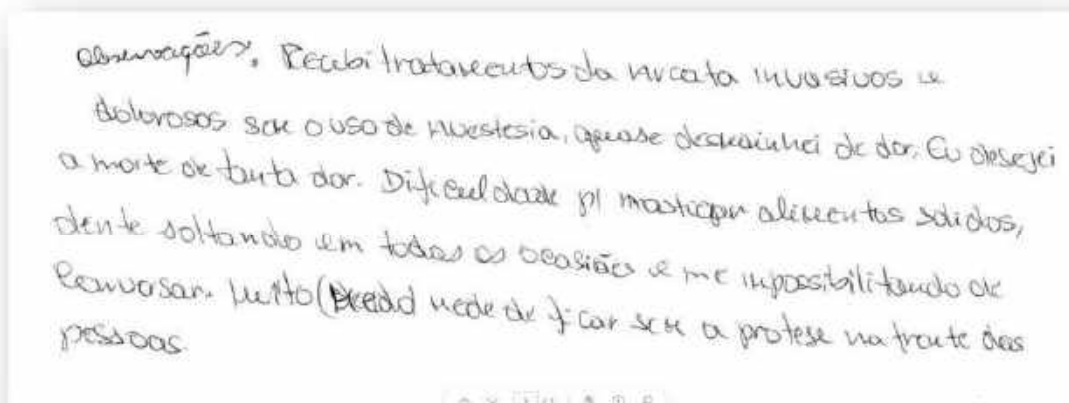 Observações, Recebi tratamentos da invasivos e
dolorosos sem o uso de anestesia, quase desmainhei de dor. Eu desejei
a morte de tanta dor. Dificuldade p/ mastigar alimentos solidos,
dente soltando em todas as ocasiões e me impossibilitando de
Conversar. Muito medo de ficar sem a protese na frente das
pessoas.